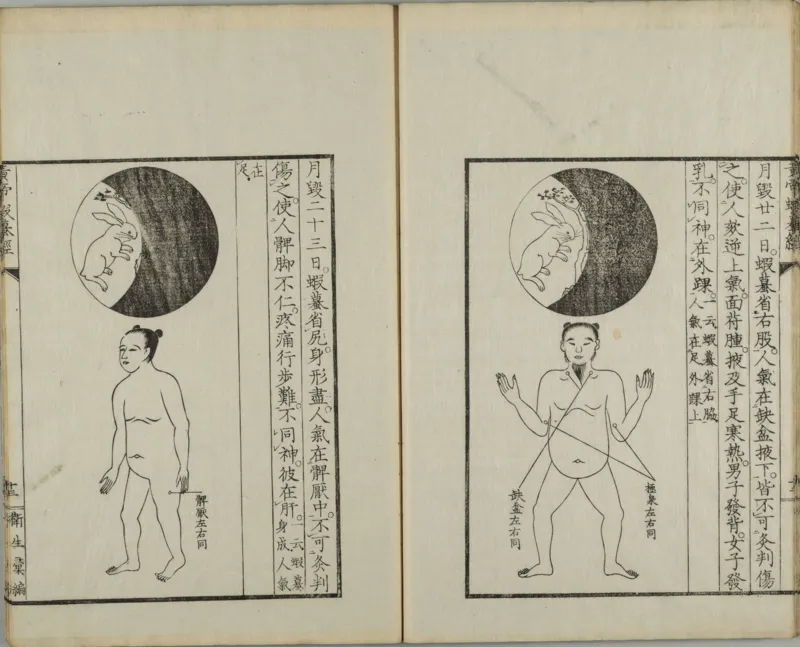 月毀廿二日。蝦蟇省右股。人氣在缺盆掖下。皆不可灸判傷
之。使人欬逆上氣。面胕腫。掖及手足寒熱。男子發背。女子發
乳。不同神。在外踝。一云蝦蟇省右脇
人氣在足外踝上
缺盆左右同
極泉左右同
月毀二十三日。蝦蟇省尻。身形盡。人氣在髀厭中。不可灸判
傷之。使人髀脚不仁。疼痛行步難。不同神。彼在肝。一云蝦蟇
身廢人氣
在足
髀厭左右同
衛生彙編